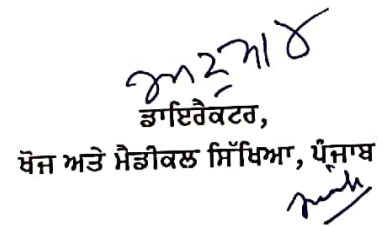 ਡਾਇਰੈਕਟਰ,
ਖੋਜ ਅਤੇ ਮੈਡੀਕਲ ਸਿੱਖਿਆ, ਪੰਜਾਬ